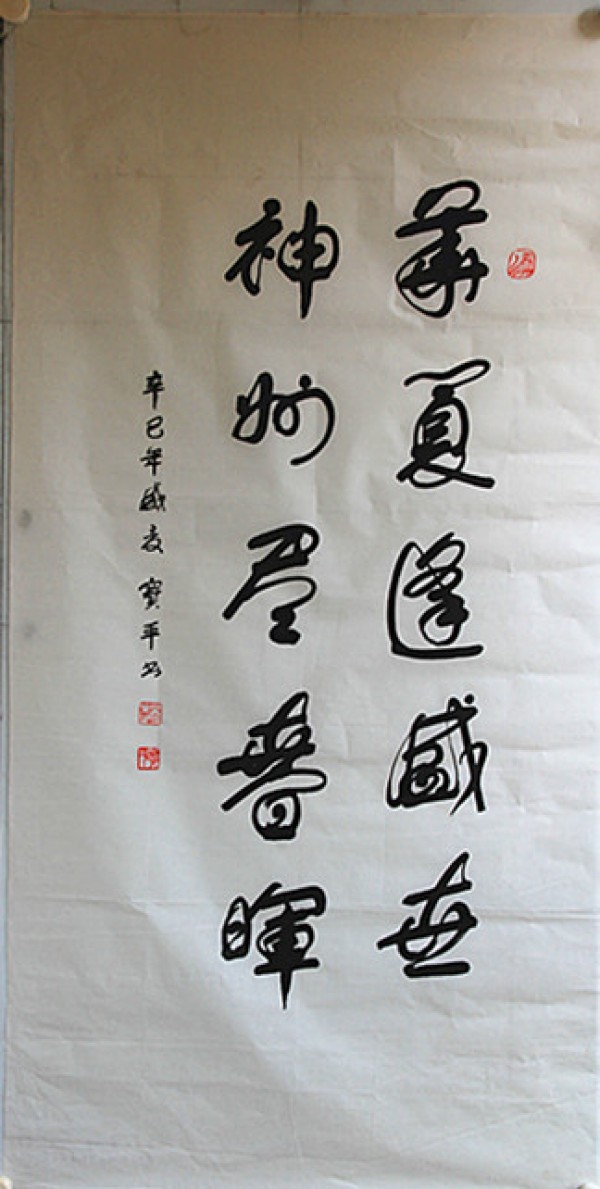 華夏逢盛世
神州尽春暉
辛巳年盛夏 寶平书